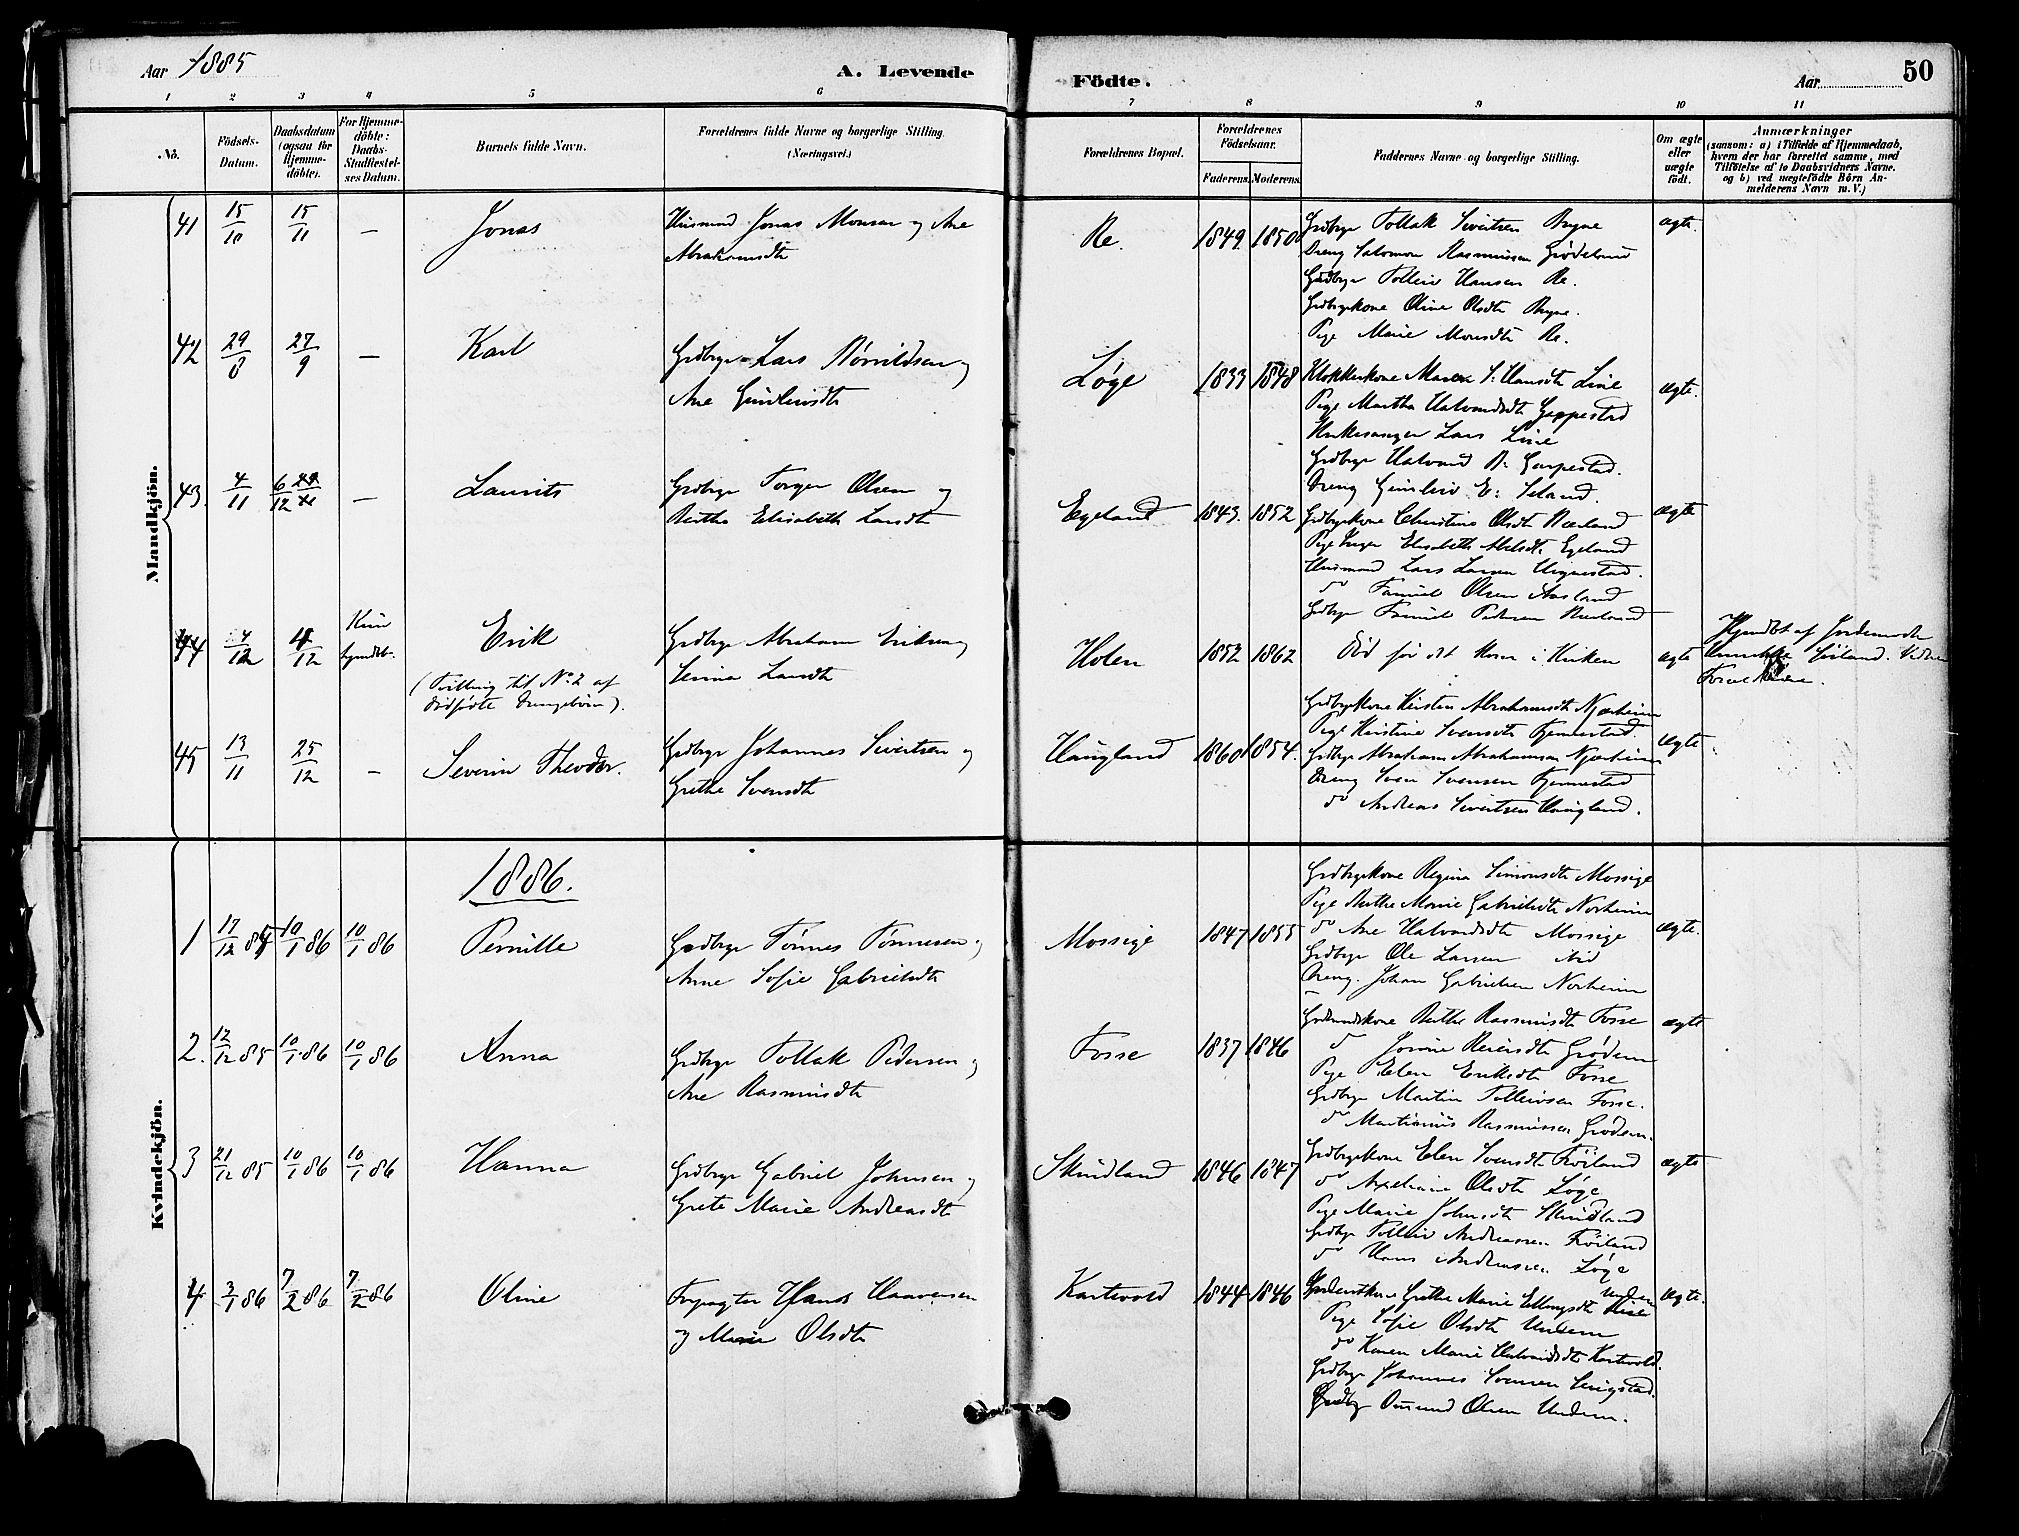 Aar 1885
A. Levende
Födte.
Aar
50
1 2 3 4 5 6 7 8 9 10 11
No.
Födsels-Datum.
Daabsdatum (ogsaa for Hjemmedöbte).
For Hjemmedöbte: Daabs-Stadfæstelses Datum.
Barnets fulde Navn.
Forældrenes fulde Navne og borgerlige Stilling.
(Næringsvei.)
Forældrenes Bopæl.
Forældrenes Fødselsaar.
Faderens. Moderens.
Faddernes Navne og borgerlige Stilling.
Om ægte eller uægte födt.
Anmærkninger
(saasom: a) i Tilfælde af Hjemmedaab,
hvem der har forrettet samme, med
Tilföielse af to Daabsvidners Navne.
og b) ved uægtefödte Börn An-
melderens Navn m. V.)
Mandkjön.
41 15/10 15/11 — Jonas
Husmand Jonas Monsen og Ane
Abrahamsdtr
Re. 1849. 1850
Grdbrgr Tollak Sivertsen Bryne
Dreng Salomon Rasmussen Grødeland
Grdbrgr Tolleiv Hansen Re.
Grdbrgrkone Oline Olsdtr Bryne.
Pige Marie Monsdtr Re.
ægte.
42 29/8 27/9 — Karl
Grdbrgr Lars Børrildsen og
Ane Gunleivsdtr
Løge 1833 1848
Klokkerkone Maren S. Hansdtr Line
Pige Martha Halvardsdtr Garpestad
Kirkesanger Lars Line
Grdbrgr Halvard B. Garpestad.
Dreng Gunleiv E. Seland.
ægte.
43. 4/11 6/12 — Laurits
Grdbrgr Torger Olsen og
Berthe Elisabeth Larsdtr
Egeland 1843. 1852
Grdbrgrkone Christine Olsdtr
Pige Inger Elisabeth Egeland
Husmand Lars Larsen
do Olsen Aasland
Grdbrgr
ægte
44 4/12 4/12 Kun hjmdbt.
Erik
(Tvilling til No. 2 af
dødfødte Drengebørn).
Grdbrgr Abraham Eriksen og
Serina Larsdtr
Holen 1852 1862
Død før det kom i Kirken
ægte
Hjemdbt af Jordemoder
45 13/11 25/12 — Severin Theodor.
Grdbrgr Johannes Sivertsen og
Grethe Svensdtr
Haugland 1860 1854.
Grdbrgrkone Kirsten Abrahamsdtr Njærheim
Pige Kristine Svensdtr Fjermestad.
Grdbrgr Abraham Abrahamsen Njærheim
Dreng Sven Svensen Fjermestad
do Andreas Sivertsen Haugland.
ægte.
Kvindekjön.
1886.
1 17/12 85 10/1 86 10/1 86 Pernille
Grdbrgr Tønnes Tønnesen og
Anne Sofie Gabrielsdtr
Mossige 1847 1855
Grdbrgrkone Regine Simonsdtr Mossige
Pige Berthe Marie Gabrielsdtr Norheim
do Ane Halvardsdtr Mossige
Grdbrgr Ole Larsen
Dreng. Johan Gabrielsen Norheim
ægte.
2. 12/12 85 10/1 86 10/1 86 Anna
Grdbrgr Tollak Pedersen og
Ane Rasmusdtr
Fosse 1837 1846
Berthe Rasmusdtr Fosse
do Grødem
Pige Elen Eriksdtr Fosse
Grdbrgr Martin Tolleivsen Fosse.
do Martinius Rasmussen Grødem.
ægte
3 21/12 85 10/1 86 10/1 86 Hanna
Grdbrgr Gabriel Johnsen og
Grete Marie Andreasdtr
Skindland 1846 1847
Grdbrgrkone Elen Svensdtr Frøiland
do Axeliane Olsdtr Løge
Pige Marie Johnsdtr Skindland
Grdbrgr Tolleiv Andreassen Frøiland
do Hans Andreassen Løge
ægte
4 3/1 86 7/2 86 7/2 86 Oline
Forpagter Hans Haavorsen
og Marie Olsdtr
Kartevold 1844 1846
Grethe Marie Ellingsdtr Undem
Pige Sofie Olsdtr Undem
do Karen Marie Halvardsdtr Kartevold.
Grdbrgr Johannes Svensen
Grdbrgr Olsen Undem.
ægte.